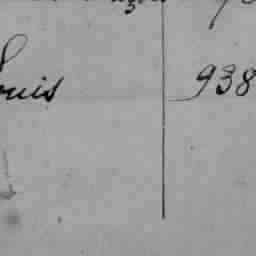 Louis 938